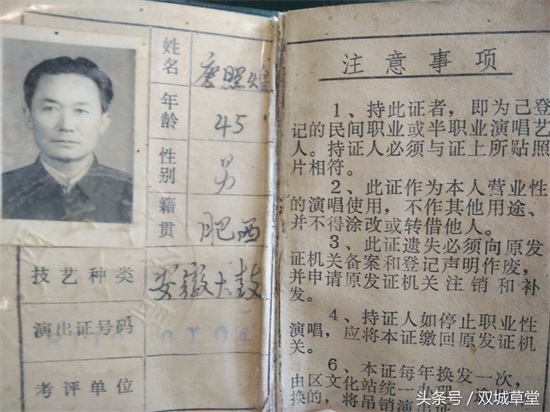 姓名 照煌
年龄 45
性别 男
籍贯 肥西
技艺种类 安徽大鼓
演出证号码 0104
考评单位
注意事项
1、持此证者，即为己登
记的民间职业或半职业演唱艺
人。持证人必须与证上所贴照
片相符。
2、此证作为本人营业性
的演唱使用，不作其他用途、
并不得涂改或转借他人。
3、此证遗失必须向原发
证机关备案和登记声明作废，
并申请原发证机关注销和补
发。
4、持证人如停止职业性
演唱，应将本证缴回原发证机
关。
6、本证每年换发一次，
由区文化站统一
换的，将吊销演
头条号／双城草堂